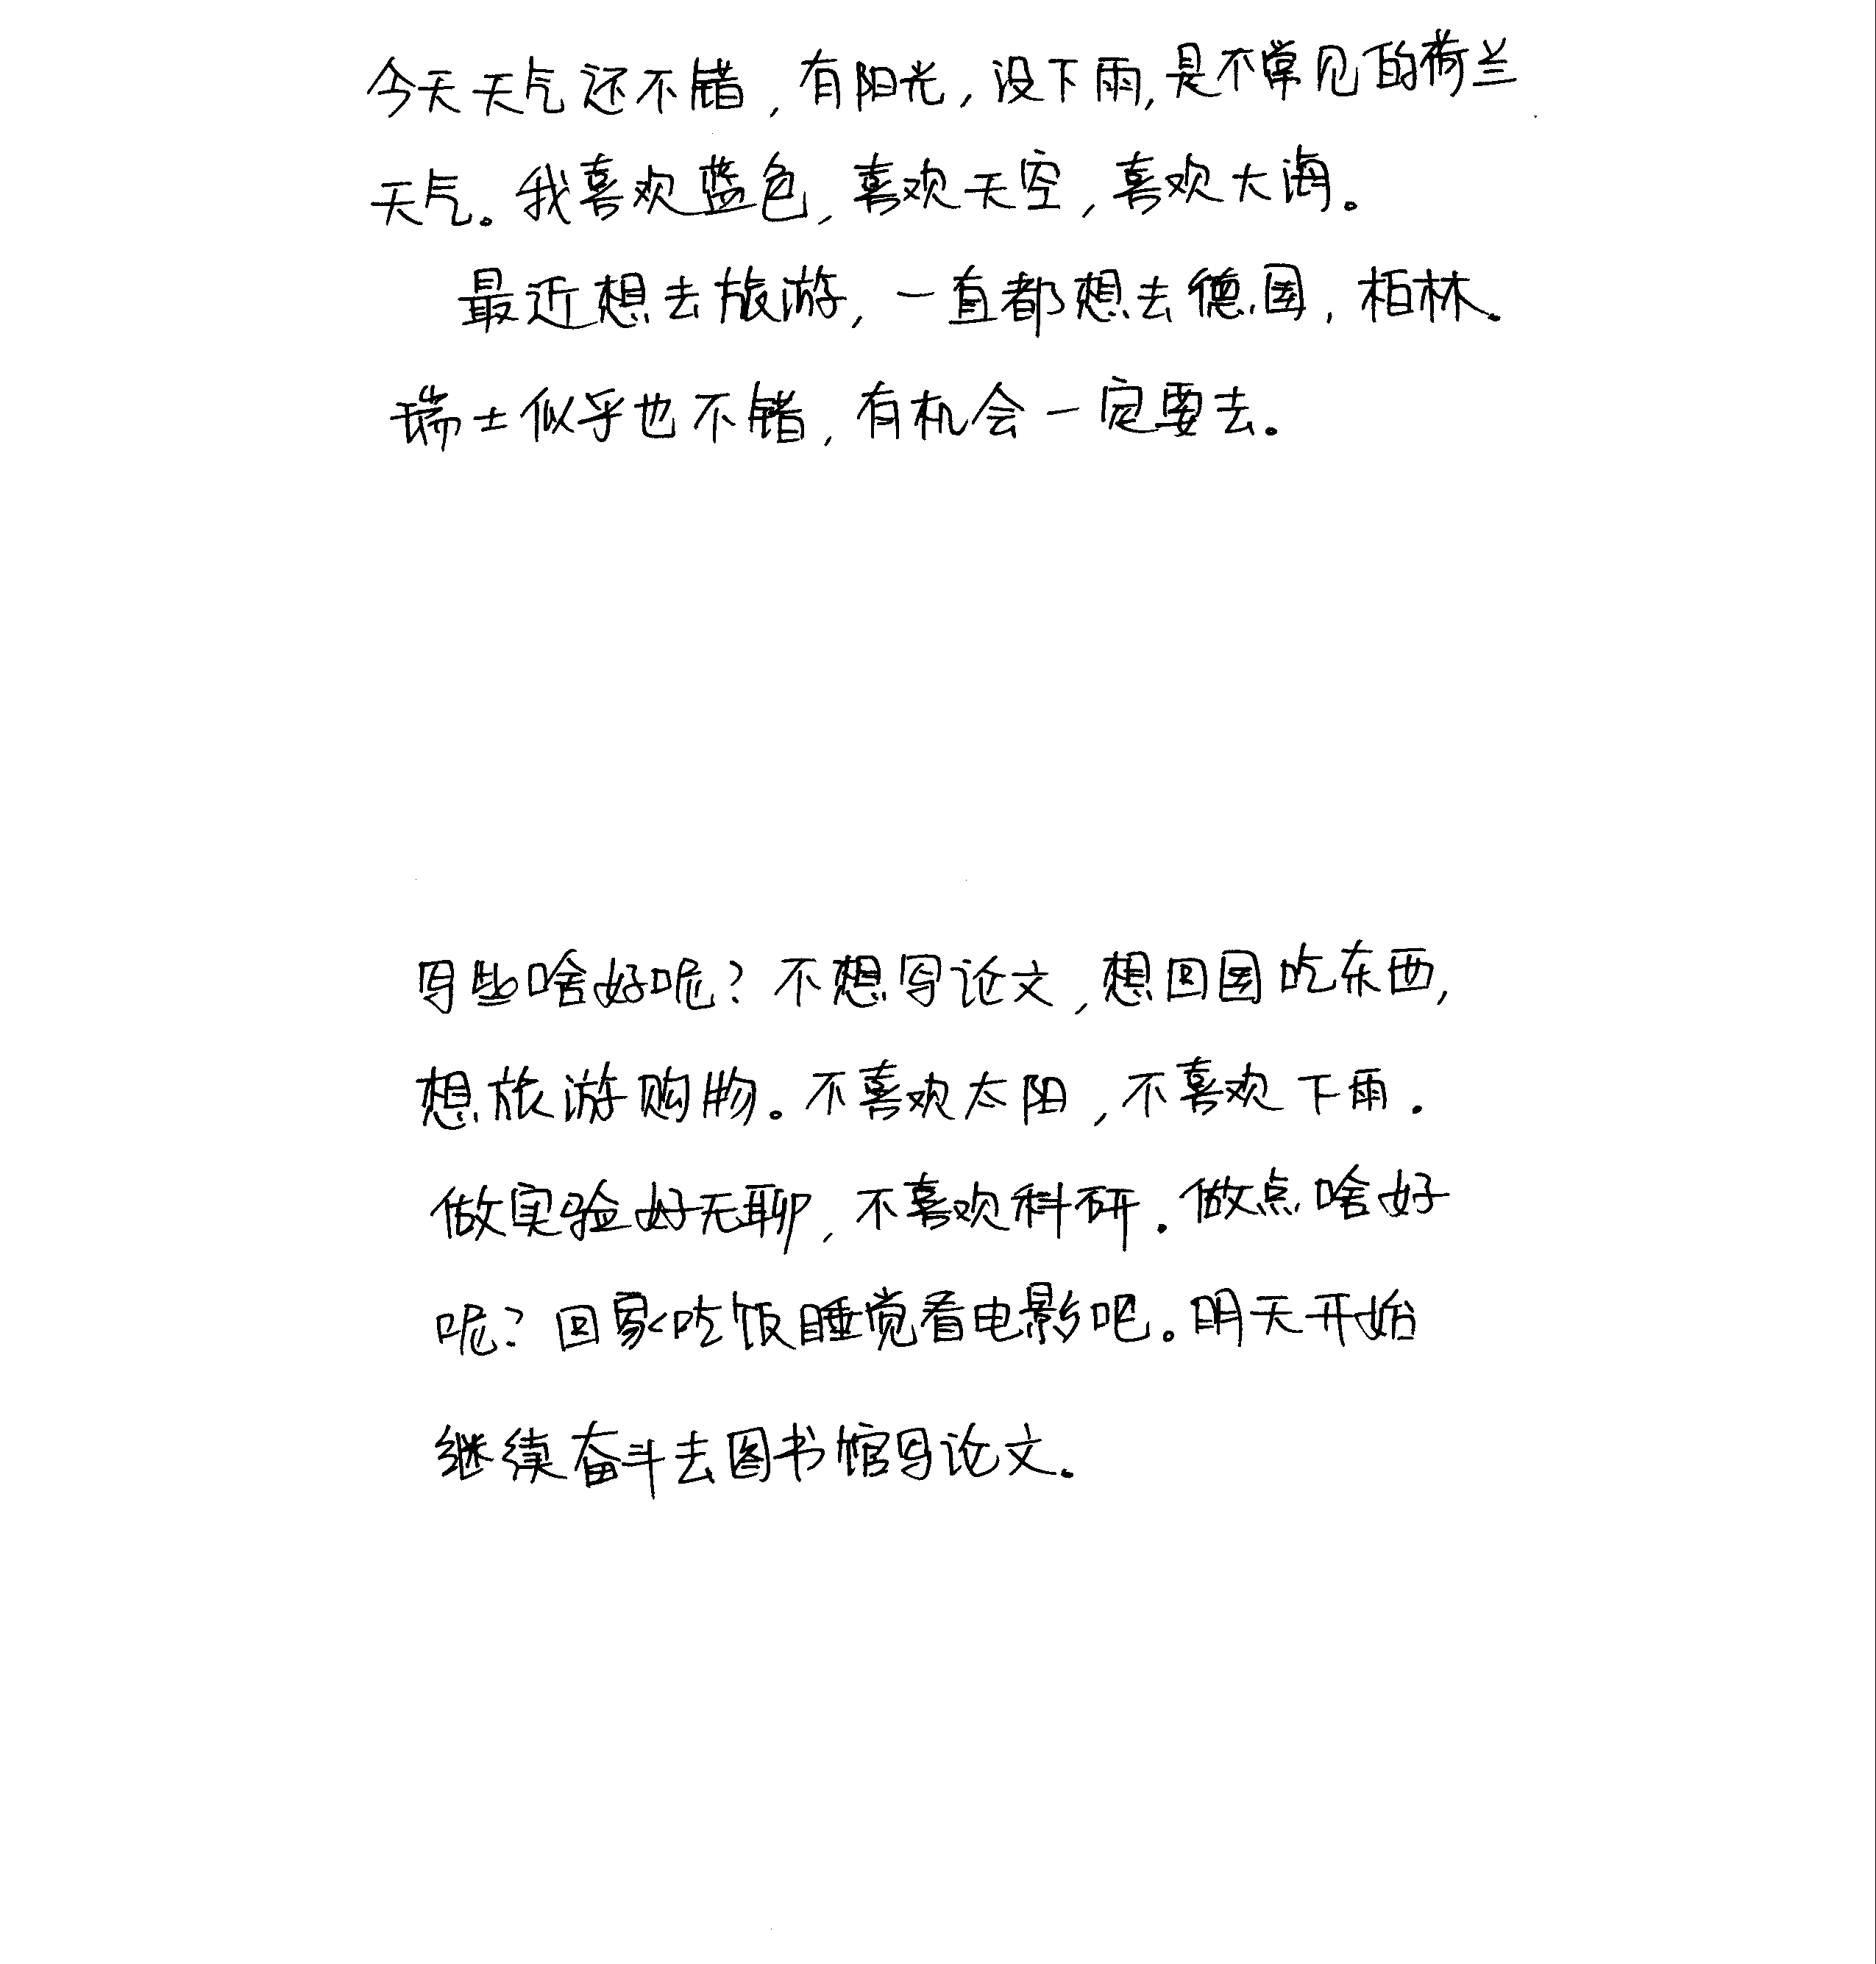 今天天气还不错，有阳光，没下雨，是不常见的荷兰
天气。我喜欢蓝色，喜欢天空，喜欢大海。
最近想去旅游，一直都想去德国，柏林。
瑞士似乎也不错，有机会一定要去。
写些啥好呢？不想写论文，想回国吃东西，
想旅游购物。不喜欢太阳，不喜欢下雨．
做实验好无聊，不喜欢科研．做点啥好
呢？回家吃饭睡觉看电影吧。明天开始
继续奋斗去图书馆写论文。